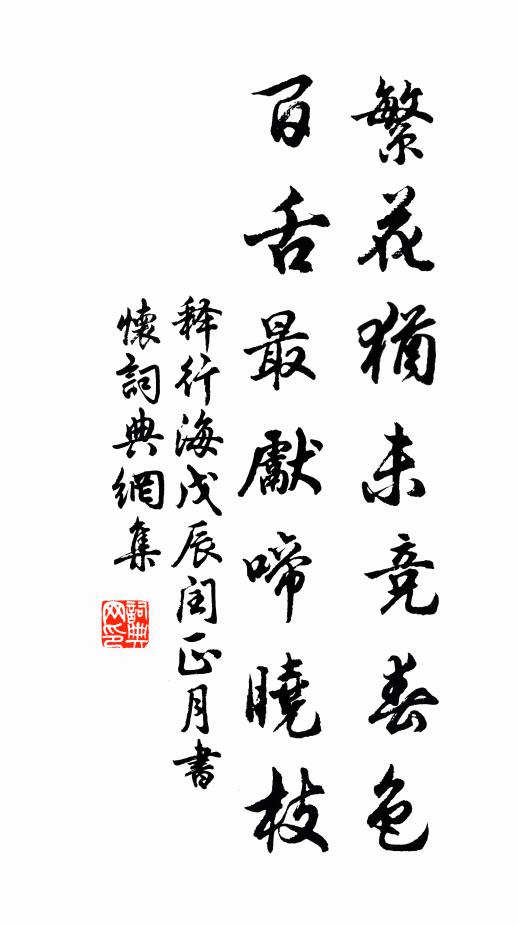 繁花猶未竞春色
百舌最獻啼曉枝
释行海戊辰闰正月書
懷詞典網集
詞典网印